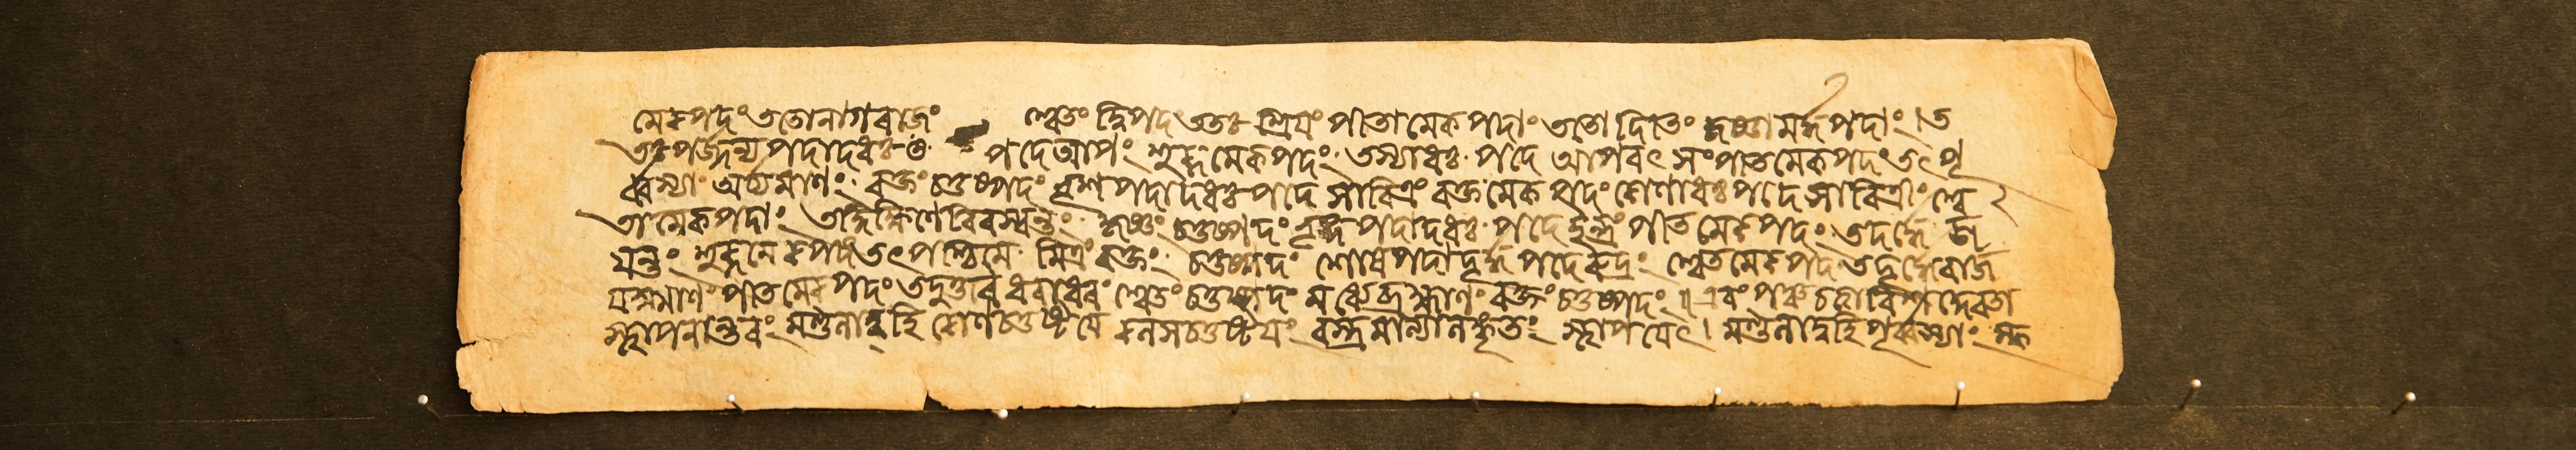 মেকপদং ততো নাগরাজং শ্বেতং দ্বিপদং ততঃ শ্রিয়ং পীতামেকপদাং ততো দিতিং কৃষ্ণামর্দ্ধপদাং। ত
তঃ পর্জ্জন্য পদাদধঃ পদে আপং শুক্লমেকপদং তস্যাধঃ পদে আপবৎ সং পীতমেকপদং তৎ পূ
র্ব্বস্যাং অর্য্যমাণং রক্তং চতুষ্পদং ভৃশ পদাদধঃ পদে সাবিত্রং রক্তমেকপদং তস্যাধঃ পদে সাবিত্রীং শ্বে
তামেকপদাং তদ্দক্ষিণে বিবস্বন্তং কৃষ্ণং চতুষ্পদং পদাদধঃ পদে ইন্দ্রং পীতমেকপদং তদর্দ্ধে জ
য়ন্তং শুক্লমেকপদং তৎ পশ্চিমে মিত্রং রক্তং চতুষ্পদং শোষপদাদূর্দ্ধপদে রুদ্রং শ্বেতমেকপদং তদূর্দ্ধে রাজ
যক্ষ্মাণং পীতমেকপদং তদুত্তরে ধরাধরং শ্বেতং চতুষ্পদং মধ্যে ব্রহ্মাণং রক্তং চতুষ্পদং॥ এবং পঞ্চচত্বারিংশদ্দেবতা
স্থাপনান্তরং মণ্ডলাদ্বহি কোণচতুষ্টয়ে কলসচতুষ্টয়ং বস্ত্রমাল্যালঙ্কৃতং স্থাপয়েৎ। মণ্ডলাদ্বহি পূর্ব্বস্যাং